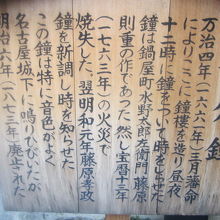 万治四年(一六六一年)三月藩命
によりここに鐘楼を造り昼夜
十二時に鐘をついて時を知らせた
鐘は鍋屋町水野太郎左衛門藤原
則重の作であった。然し宝暦十三年
(一七六三年)の火災で
焼失した。翌明和元年藤原孝政
鐘を新調し時を知らせた
この鐘は特に音色がよく
名古屋城下に鳴りひびいたが
明治六年(一八七三年)廃止された